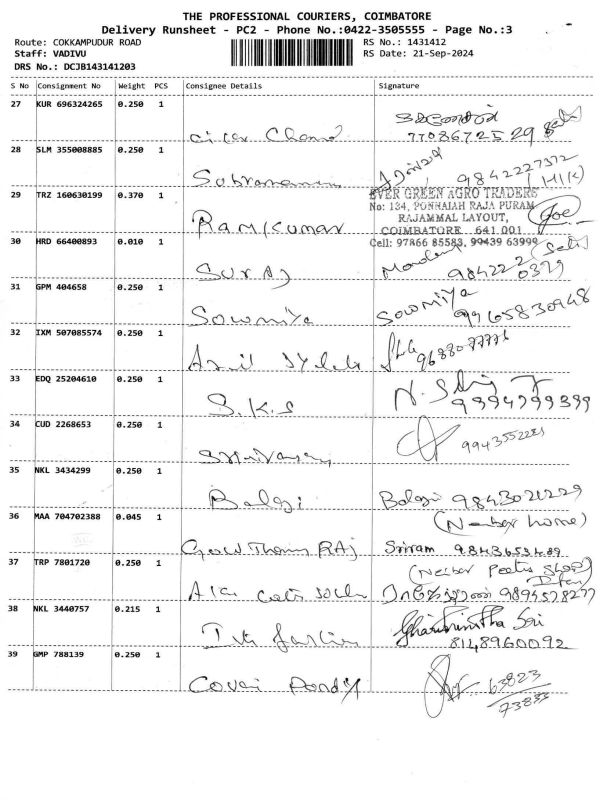 THE PROFESSIONAL COURIERS, COIMBATORE
Delivery Runsheet - PC2 - Phone No.:0422-3505555 - Page No.:3
Route: COKKAMPUDUR ROAD RS No.: 1431412
Staff: VADIVU RS Date: 21-Sep-2024
DRS No.: DCJB143141203
S No Consignment No Weight PCS Consignee Details Signature
27 KUR 696324265 0.250 1
Chand 7708672529
28 SLM 355008885 0.250 1
9842227372
Subramanian
29 TRZ 160630199 0.370 1 EVER GREEN AGRO TRADERS
No: 134, PONNAIAH RAJA PURAM
RAJAMMAL LAYOUT,
Ramkumar COIMBATORE 641 001
30 HRD 66400893 0.010 1 Cell: 97866 85583, 99439 63999
Suraj 9842220379
31 GPM 404658 0.250 1 Sowmiya
Sowmiya 9965830948
32 IXM 507085574 0.250 1
9688077776
33 EDQ 25204610 0.250 1
S.K.S 9994799399
34 CUD 2268653 0.250 1
9943552281
35 NKL 3434299 0.250 1
Balaji Balaji 9843021229
36 MAA 704702388 0.045 1 (Neiber home)
Gowtham RAJ Sriram 9843653489
37 TRP 7801720 0.250 1 (Neiber
9894578277
38 NKL 3440757 0.215 1 Sri
8148960092
39 GMP 788139 0.250 1
Covai 63823
73833